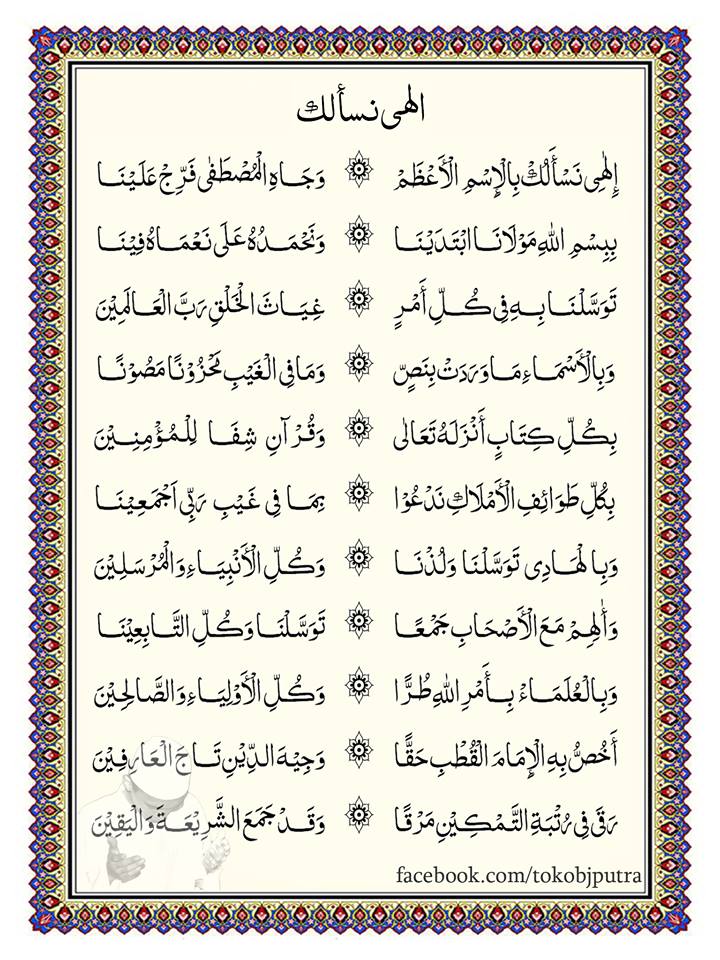 الهي نسألك
إِلٰهِي نَسْأَلُكْ بِالْإِسْمِ الْأَعْظَمْ ۞ وَجَاهِ الْمُصْطَفٰى فَرِّجْ عَلَيْنَا
بِبِسْمِ اللهِ مَوْلَانَا ابْتَدَيْنَا ۞ وَنَحْمَدُهُ عَلَى نَعْمَاهُ فِيْنَا
تَوَسَّلْنَا بِهِ فِي كُلِّ أَمْرٍ ۞ غِيَاثَ الْخَلْقِ رَبَّ الْعَالَمِيْنَ
وَبِالْأَسْمَاءِ مَا وَرَدَتْ بِنَصٍّ ۞ وَمَا فِي الْغَيْبِ مَخْزُوْنًا مَصُوْنًا
بِكُلِّ كِتَابٍ أَنْزَلَهُ تَعَالٰى ۞ وَقُرْآنِ شِفَا لِلْمُؤْمِنِيْنَ
بِكُلِّ طَوَائِفِ الْأَمْلَاكِ نَدْعُوْا ۞ بِمَا فِي غَيْبِ رَبِّي اَجْمَعِيْنَا
وَبِالْهَادِى تَوَسَّلْنَا وَلُذْنَا ۞ وَكُلِّ الْأَنْبِيَاءِ وَالْمُرْسَلِيْنَ
وَأٰلِهِمْ مَعَ الْأَصْحَابِ جَمْعًا ۞ تَوَسَّلْنَا وَكُلِّ التَّابِعِيْنَا
وَبِالْعُلَمَاءْ بِأَمْرِ اللهِ طُرًّا ۞ وَكُلِّ الْأَوْلِيَاءِ وَالصَّالِحِيْنَ
أَخُصُّ بِهِ الْإِمَامَ الْقُطْبِ حَقًّا ۞ وَجِيْهَ الدِّيْنِ تَاجَ الْعَارِفِيْنَ
رَقَى فِي رُتْبَةِ التَّمْكِيْنِ مَرْقًا ۞ وَقَدْ جَمَعَ الشَّرِيْعَةَ وَالْيَقِيْنَ
facebook.com/tokobjputra